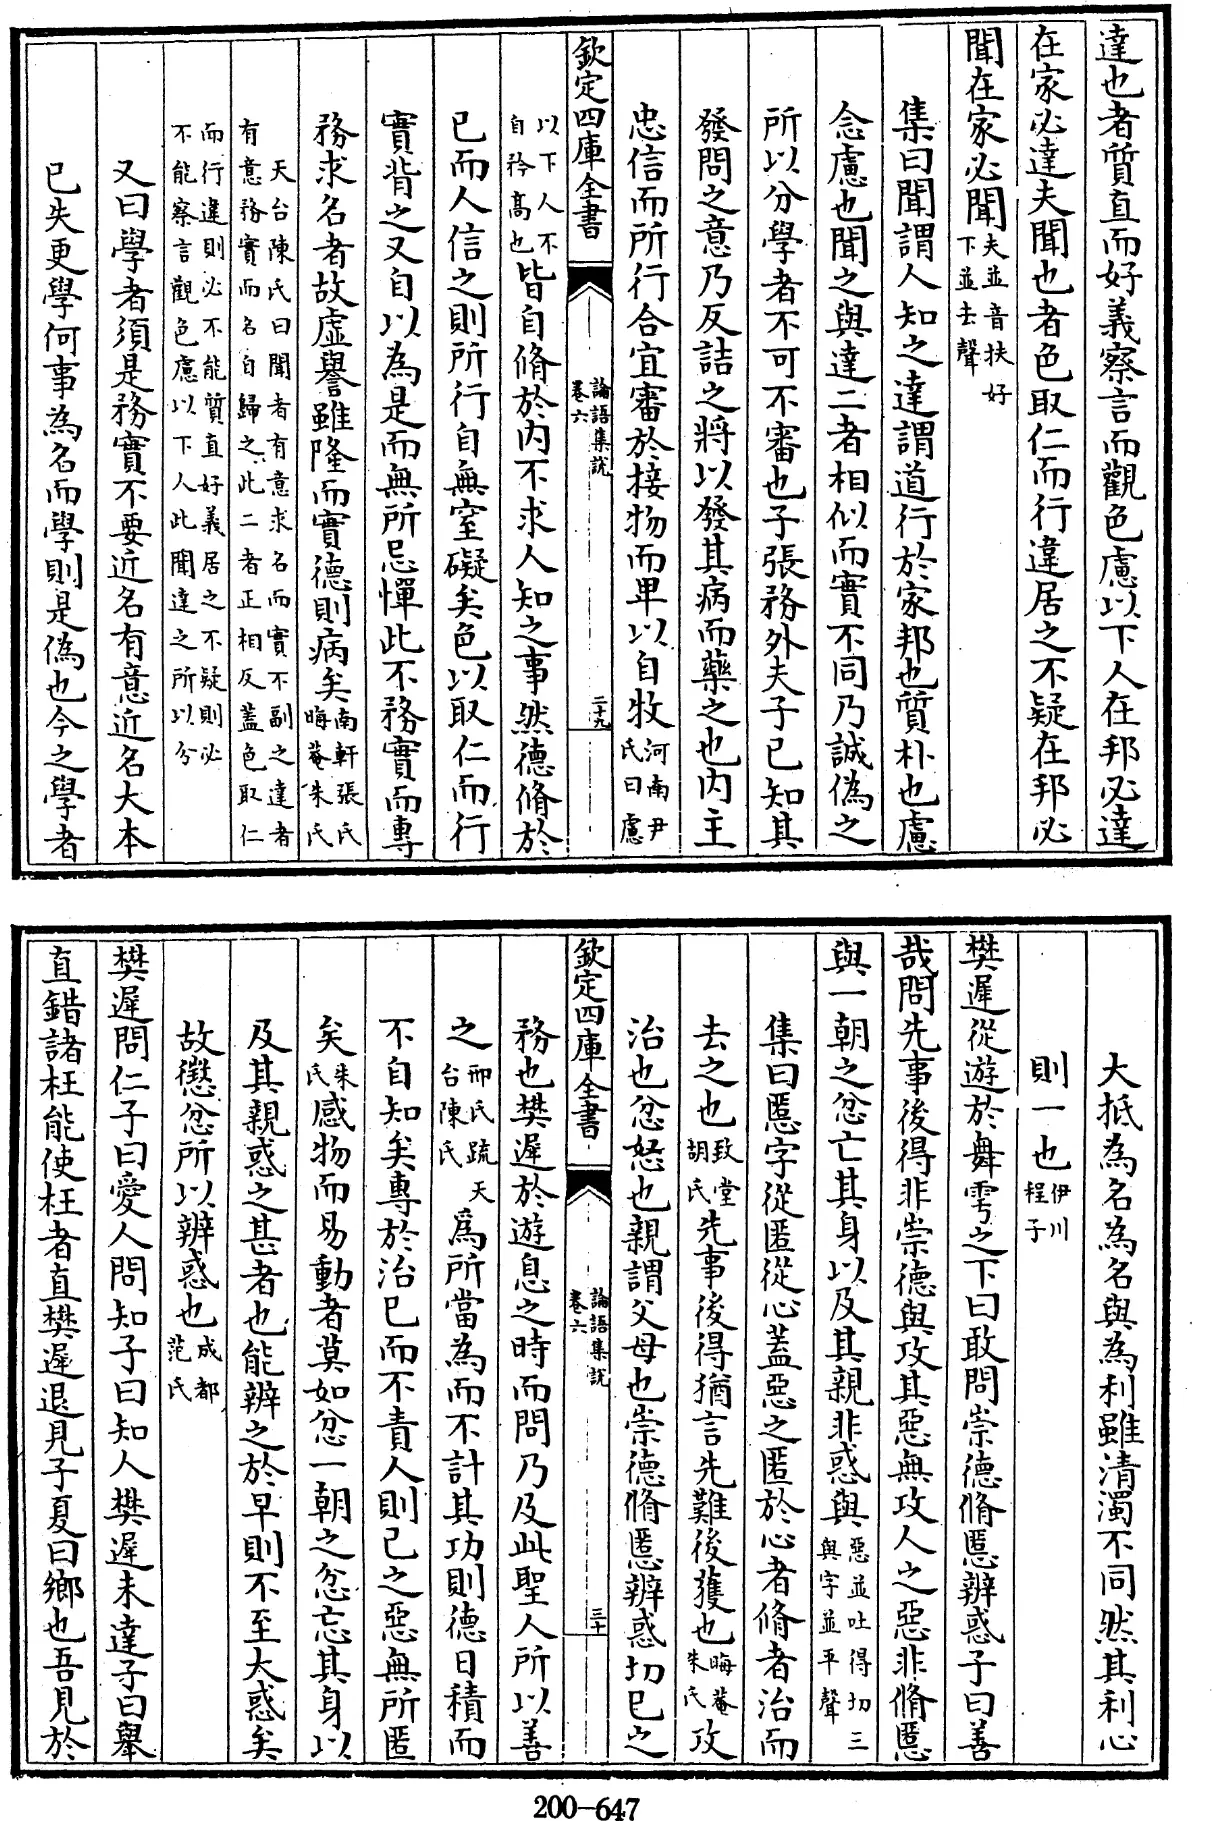 達也者質直而好義察言而觀色慮以下人在邦必達
在家必達夫聞也者色取仁而行違居之不疑在邦必
聞在家必聞夫並音扶好下並去聲
集曰聞謂人知之達謂道行於家邦也質朴也慮
念慮也聞之與達二者相似而實不同乃誠偽之
所以分學者不可不審也子張務外夫子已知其
發問之意乃反詰之將以發其病而藥之也内主
忠信而所行合宜審於接物而卑以自牧河南尹氏曰慮
欽定四庫全書
論語集説
卷六
二十九
以下人不自矜高也皆自脩於内不求人知之事然德脩於
已而人信之則所行自無窒礙矣色以取仁而行
實背之又自以為是而無所忌憚此不務實而專
務求名者故虛譽雖隆而實德則病矣南軒張氏晦菴朱氏
天台陳氏曰聞者有意求名而實不副之達者
有意務實而名自歸之此二者正相反蓋色取仁
而行違則必不能質直好義居之不疑則必
不能察言觀色慮以下人此聞達之所以分
又曰學者須是務實不要近名有意近名大本
已失更學何事為名而學則是偽也今之學者
大抵為名為名與為利雖清濁不同然其利心
則一也伊川程子
樊遲從遊於舞雩之下曰敢問崇德脩慝辨惑子曰善
哉問先事後得非崇德與攻其惡無攻人之惡非脩慝
與一朝之忿亡其身以及其親非惑與惡並吐得切三與字並平聲
集曰慝字從匿從心蓋惡之匿於心者脩者治而
去之也致堂胡氏先事後得猶言先難後獲也晦菴朱氏攻
治也忿怒也親謂父母也崇德脩慝辨惑切已之
欽定四庫全書
論語集説
卷六
三十
務也樊遲於遊息之時而問乃及此聖人所以善
之邢氏疏天台陳氏爲所當為而不計其功則德日積而
不自知矣專於治已而不責人則已之惡無所匿
矣朱氏感物而易動者莫如忿一朝之忿忘其身以
及其親惑之甚者也能辨之於早則不至大惑矣
故懲忿所以辨惑也成都范氏
樊遲問仁子曰愛人問知子曰知人樊遲未達子曰舉
直錯諸枉能使枉者直樊遲退見子夏曰鄉也吾見於
200-647